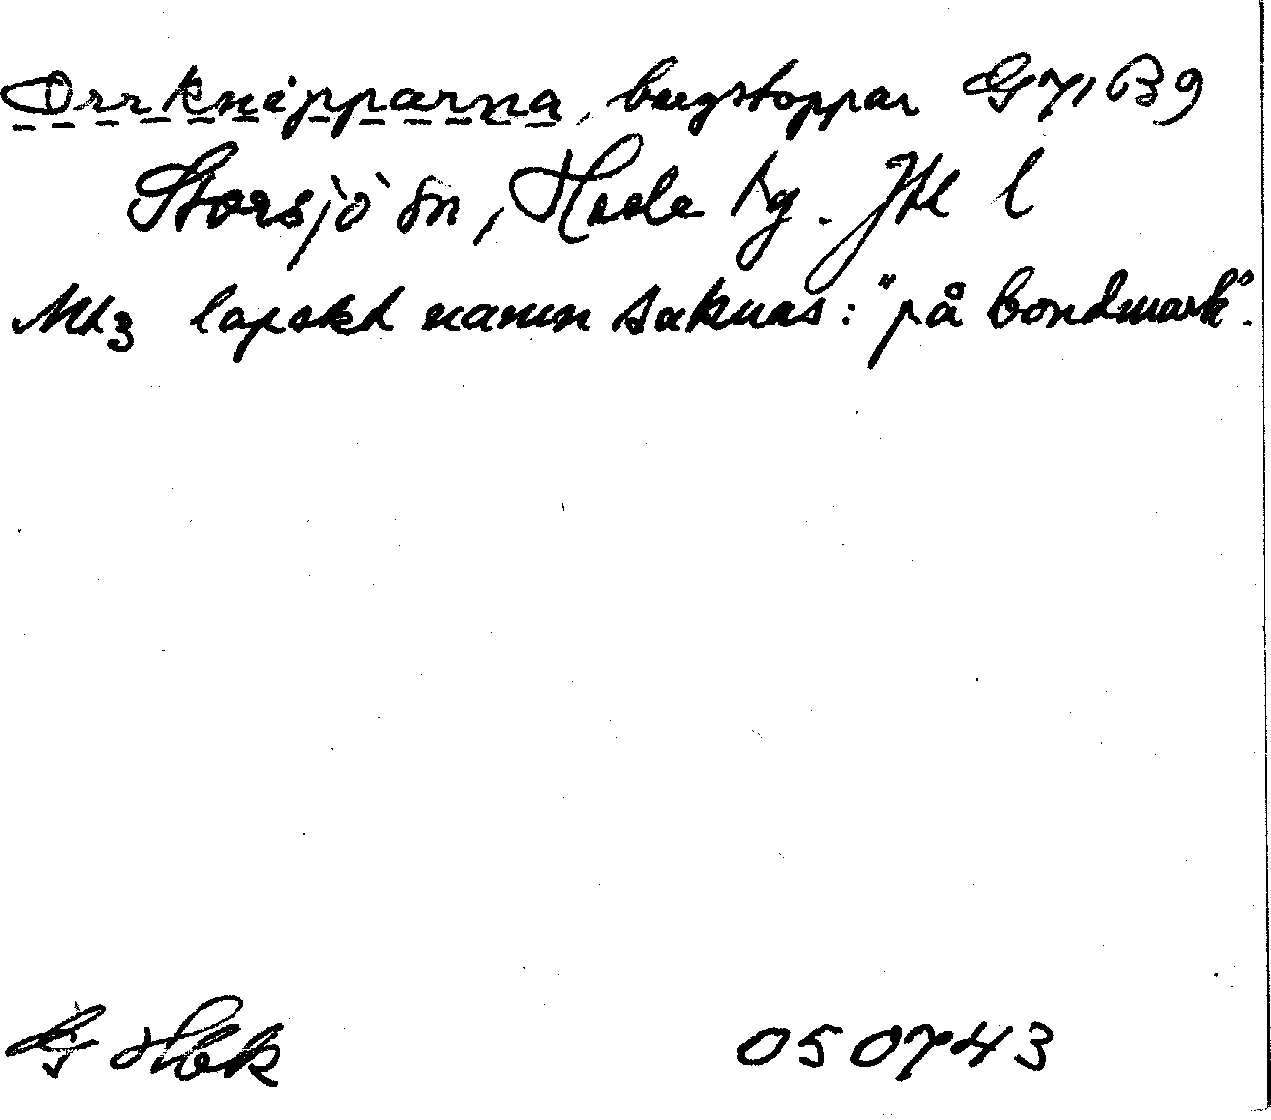 Orrknipparna, bergstoppar G71B9
Storsjö sn, Hede tg. Jtl l
Mtz lapskt namn saknas: "på bondmark".
050743